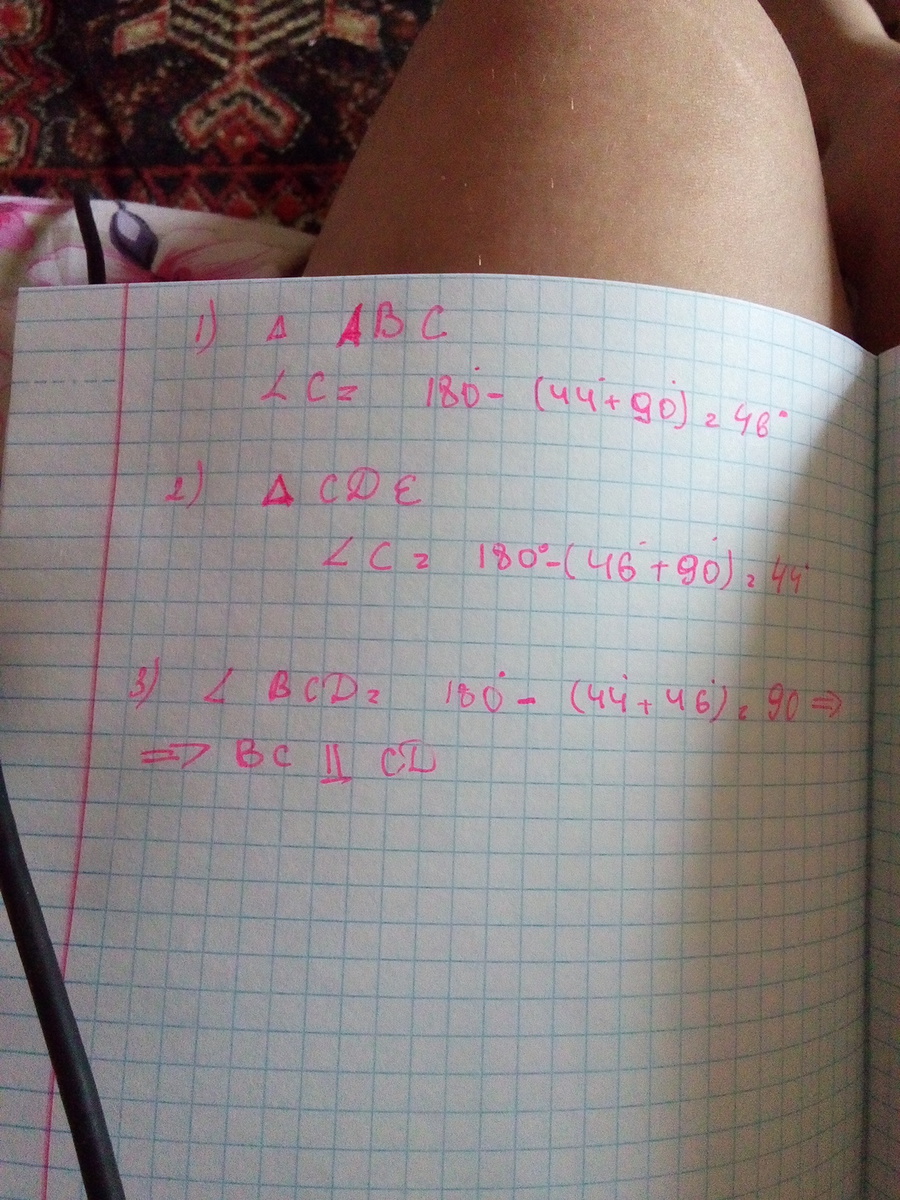 1) Δ ABC
∠ C = 180° - (44° + 90°) = 46°
2) Δ CDE
∠ C = 180° - (46° + 90°) = 44°
3) ∠ BCD = 180° - (44° + 46°) = 90 ⇒
⇒ BC || CD